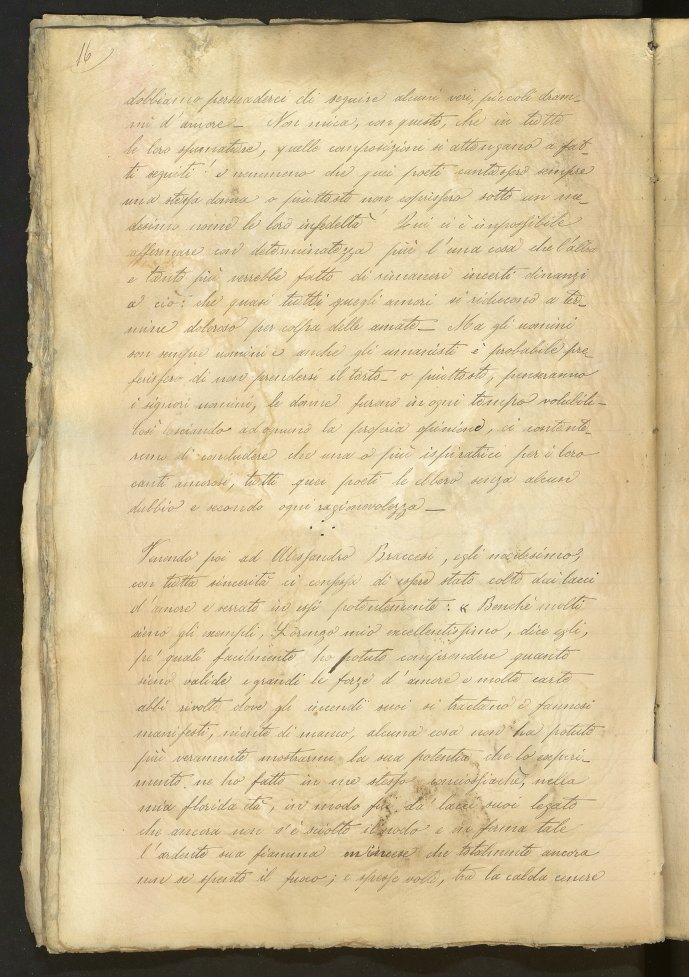 16
dobbiamo persuaderci di seguire alcuni veri, piccoli dram-
mi d'amore_ Non mica, con questo, che in tutte
le loro sfumature, quelle composizioni si attengano a fat-
ti seguiti! e nemmeno che quei poeti cantassero sempre
una stessa donna o piuttosto non coprissero sotto un me-
desimo nome le loro infedeltà! Qui ci è impossibile
affermare con determinatezza più l'una cosa che l'altra
e tanto più verrebbe fatto di rimanere incerti dinanzi
a ciò: che quasi tutti quegli amori si riducono a ter-
mine doloroso per colpa delle amate_ Ma gli uomini
son sempre uomini e anche gli umanisti è probabile pre-
ferissero di non prendersi il torto_ o piuttosto, penseranno
i signori uomini, le donne furono in ogni tempo volubili_
Così lasciando ad ognuno la propria opinione, ci contente-
remo di concludere che una o più ispiratrici per i loro
canti amorosi, tutti quei poeti le ebbero senza alcun
dubbio e secondo ogni ragionevolezza_
Venendo poi ad Alessandro Braccesi, egli medesimo,
con tutta sincerità ci confessa di essere stato colto dai lacci
d'amore e serrato in essi potentemente: « Benchè molti
sieno gli exempli, Lorenzo mio excellentissimo, dice egli,
pe' quali facilmente ho potuto comprendere quanto
sieno valide e grandi le forze d'amore e molte carte
abbi rivolte dove gli incendii suoi si tractano e fannosi
manifesti, niente di manco, alcuna cosa non ha potuto
più veramente mostrarmi la sua potentia che lo experi-
mento ne ho fatto in me stesso conciossiachè, nella
mia florida età, in modo fui da' lacci suoi legato
che ancora non s'è sciolto il nodo e in forma tale
l'ardente sua fiamma m'incese che totalmente ancora
non se spento il fuoco; e spesse volte, tra la calda cenere